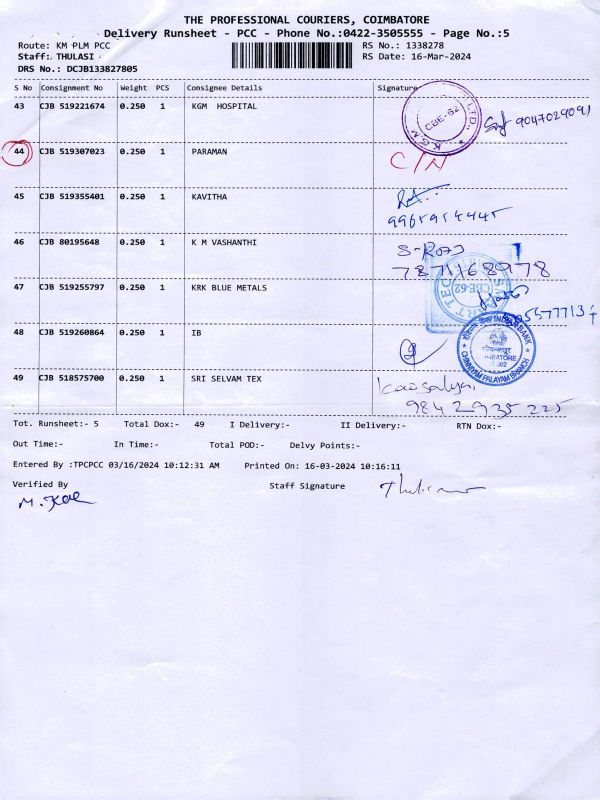 THE PROFESSIONAL COURIERS, COIMBATORE
Delivery Runsheet - PCC - Phone No.:0422-3505555 - Page No.:5
Route: KM PLM PCC RS No.: 1338278
Staff: THULASI - RS Date: 16-Mar-2024
DRS No.: DCJB133827805
S No Consignment No Weight PCS Consignee Details Signature
43 CJB 519221674 0.250 1 KGM HOSPITAL 9047029091
K.G.M LTD. CBE-62
44 CJB 519307023 0.250 1 PARAMAN C/N
45 CJB 519355401 0.250 1 KAVITHA
46 CJB 80195648 0.250 1 K M VASHANTHI
CBE-62
47 CJB 519255797 0.250 1 KRK BLUE METALS
48 CJB 519260864 0.250 1 IB
INDIAN BANK CHINNIYAM PALAYAM BRANCH
49 CJB 518575700 0.250 1 SRI SELVAM TEX
Tot. Runsheet:- 5 Total Dox:- 49 I Delivery:- II Delivery:- RTN Dox:-
Out Time:- In Time:- Total POD:- Delvy Points:-
Entered By :TPCPCC 03/16/2024 10:12:31 AM Printed On: 16-03-2024 10:16:11
Verified By Staff Signature